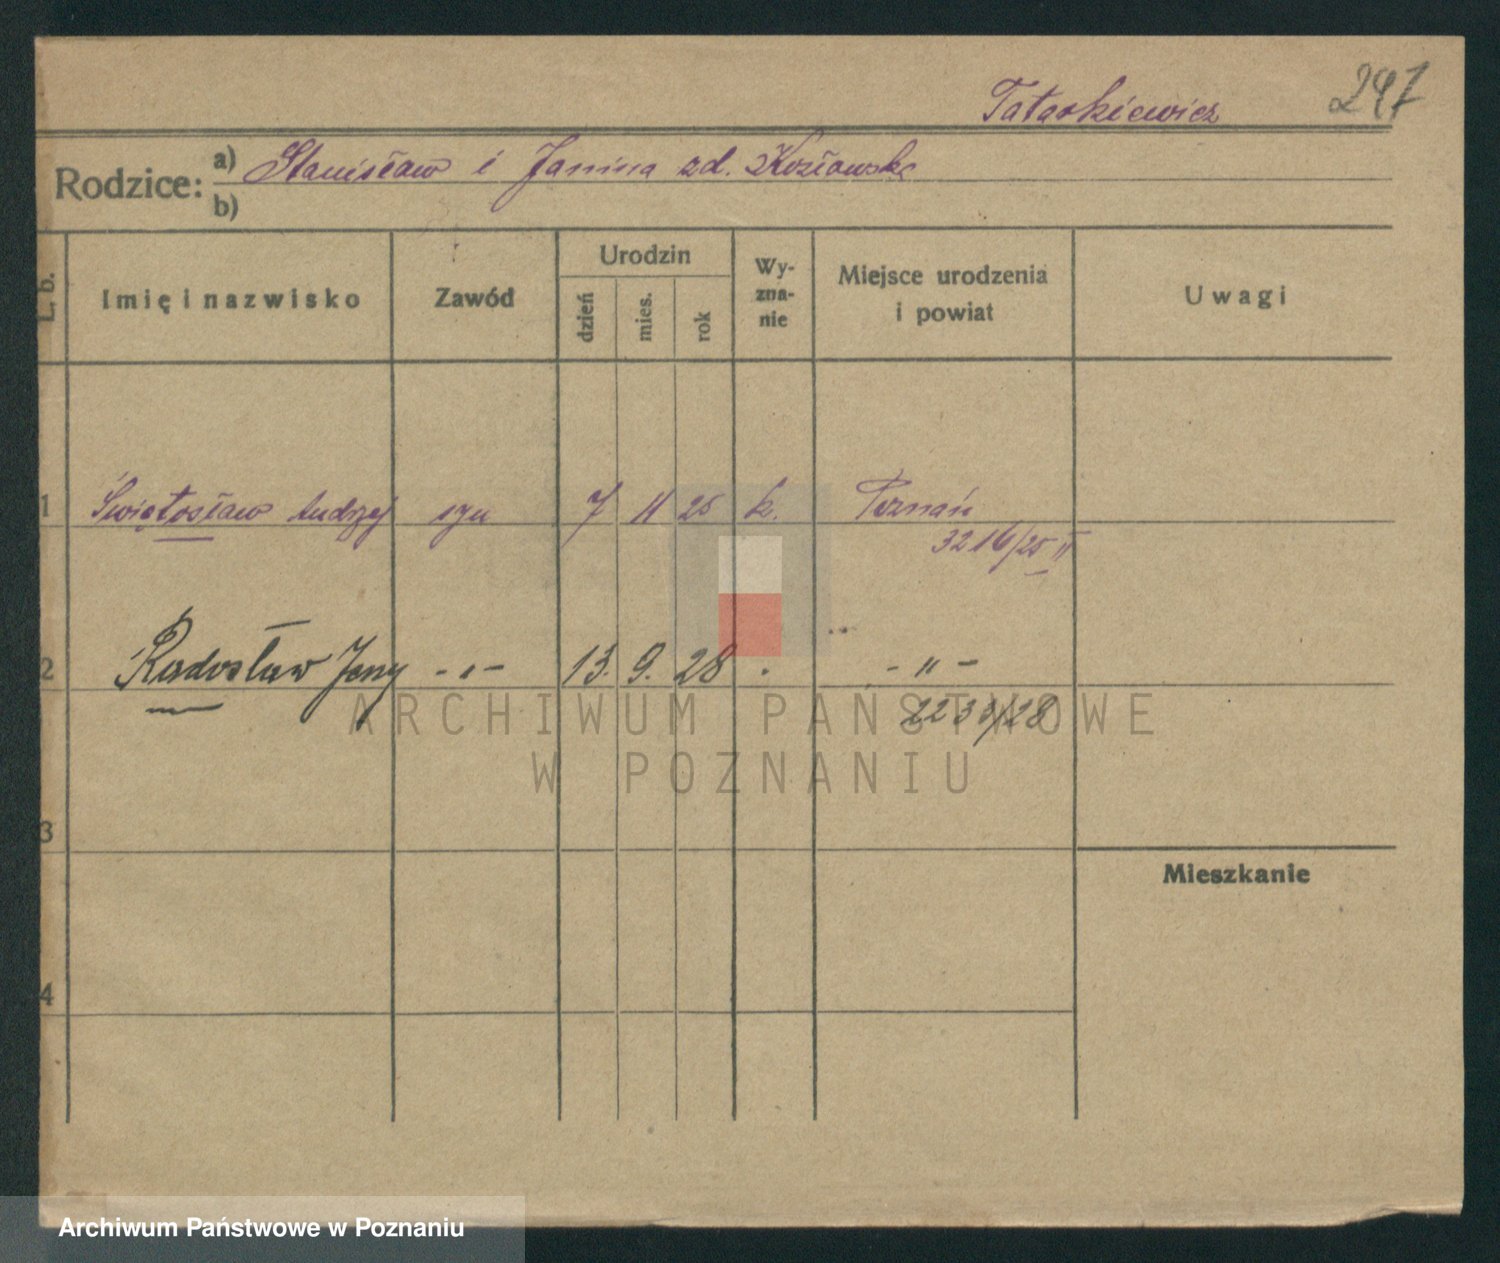 Tatarkiewicz 247
Rodzice: a) Stanisław i Janina zd. Kozłowska
b)
L. b. Imię i nazwisko Zawód Urodzin dzień mies. rok Wy-zna-nie Miejsce urodzenia i powiat Uwagi
1 Świętosław Andrzej syn 7 11 25 k. Poznań
3216/25 II
2 Radosław Jerzy -"- 13. 9. 28 . -"-
2233/28
ARCHIWUM PAŃSTWOWE
W POZNANIU
3
Mieszkanie
4
Archiwum Państwowe w Poznaniu